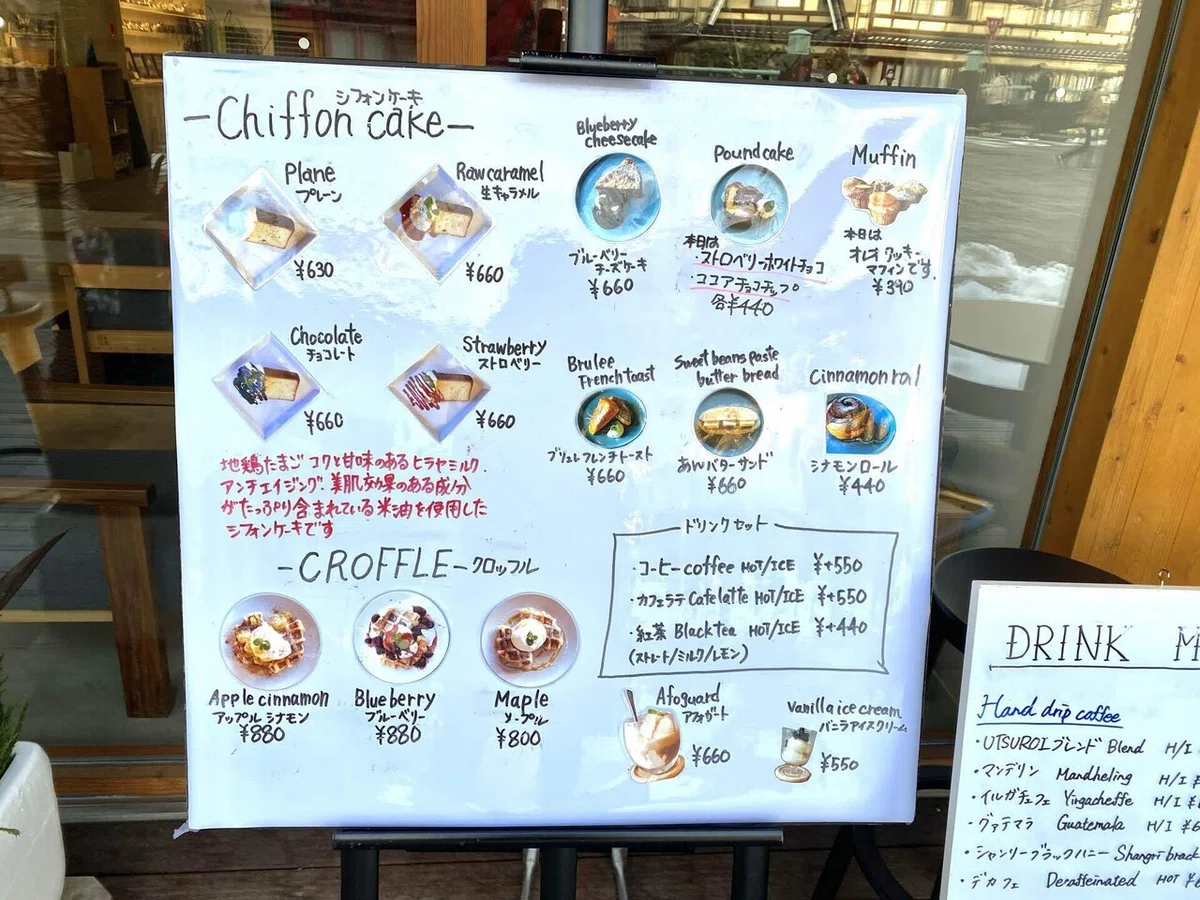 シフォンケーキ
-Chiffon cake-
Plane
プレーン
¥630
Raw caramel
生キャラメル
¥660
Chocolate
チョコレート
¥660
Strawberry
ストロベリー
¥660
地鶏たまご コクと甘味のあるヒラヤミルク.
アンチエイジング. 美肌効果のある成分
がたっぷり含まれている米油を使用した
シフォンケーキです
Blueberry
cheesecake
ブルーベリー
チーズケーキ
¥660
Pound cake
本日は
・ストロベリーホワイトチョコ
・ココアチョコチップ。
各¥440
Muffin
本日は
オレオクッキー
マフィンです.
¥390
Brulee
French toast
ブリュレフレンチトースト
¥660
Sweet beans paste
butter bread
あんバターサンド
¥660
Cinnamon roll
シナモンロール
¥440
-CROFFLE-クロッフル
Apple cinnamon
アップルシナモン
¥880
Blueberry
ブルーベリー
¥880
Maple
メープル
¥800
ドリンクセット
・コーヒー coffee HOT/ICE ¥+550
・カフェラテ Cafe latte HOT/ICE ¥+550
・紅茶 Black tea HOT/ICE ¥+440
(ストレート/ミルク/レモン)
Afoguard
アフォガート
¥660
Vanilla ice cream
バニラアイスクリーム
¥550
DRINK M
Hand drip coffee
・UTSUROIブレンド Blend H/I
・マンデリン Mandheling H/I ¥
・イルガチェフェ Yirgacheffe H/I ¥
・グァテマラ Guatemala H/I ¥6
・シャンリーブラックハニー Shangri black
・デカフェ Decaffeinated HOT ¥